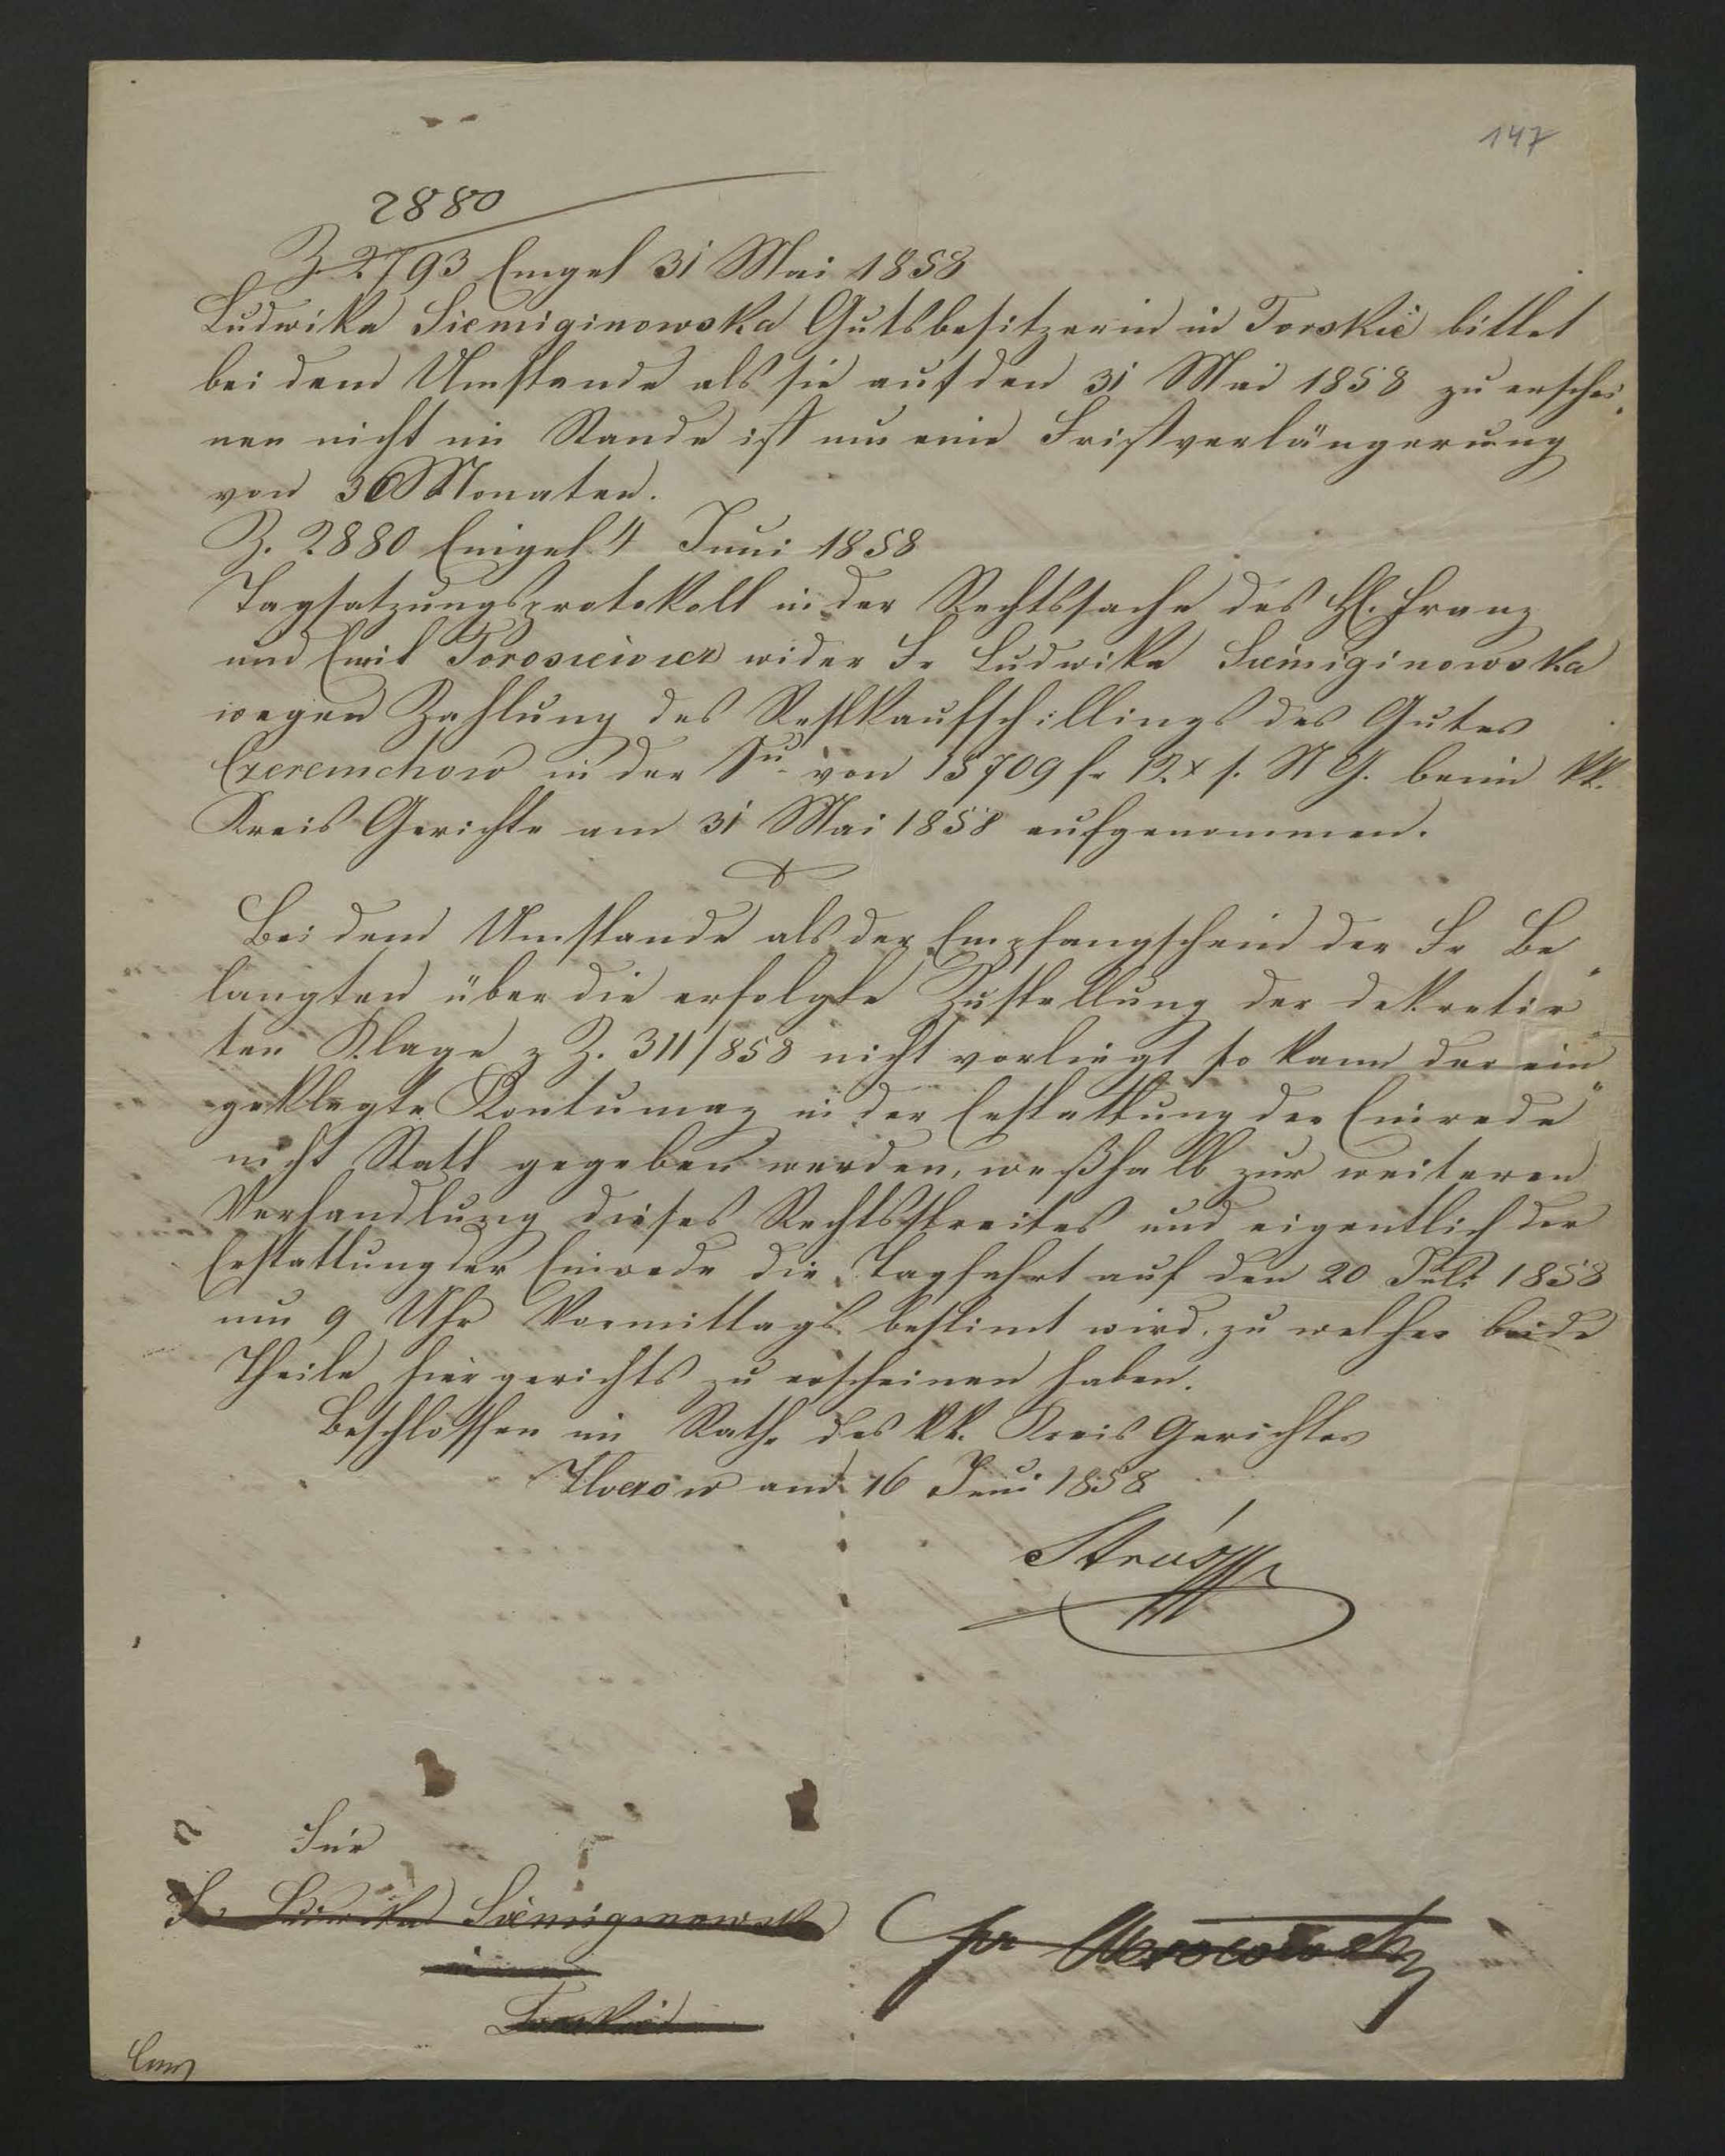 147
2880
Z 2793 Eingel 31 Mai 1858
Ludwika Siemiginowska Gutsbesitzerin in Torskie bittet
bei dem Umstande als sie auf den 31 Mai 1858 zu erschei„
nen nicht im Stande ist um eine Fristverlängerung
von Monaten.
Z. 2880 Eingel 4 Juni 1858
Tagsatzungsprotokoll in der Rechtssache des H. Franz
und Emil Torosiewicz wider Fr Ludwika Siemiginowska
wegen Zahlung des Restkaufschillings des Gutes
Czeremchow in der Su von 15709 fr 12x s. N G. beim kk.
Kreis Gerichte am 31 Mai 1858 aufgenommen.
Bei dem Umstande als der Empfangschein der Fr Be„
langten über die erfolgte Zustellung der dekretir„
ten Klage z Z. 311/858 nicht vorliegt so kann der ein„
geklagte Kontumaz in der Erstattung der Einrede
nicht Statt gegeben werden, weßhalb zur weiteren
Verhandlung dieses Rechtsstreites und eigentlich der
Erstattung der Einrede die Tagfahrt auf den 20 Juli 1858
um 9 Uhr Vormittags bestimt wird, zu welcher beide
Theile hiergerichts zu erscheinen haben.
Beschlossen im Rathe des kk. Kreis Gerichtes
am 16 Juni 1858
Für
Fr Ludwika Siemiginowska
in
Torskie